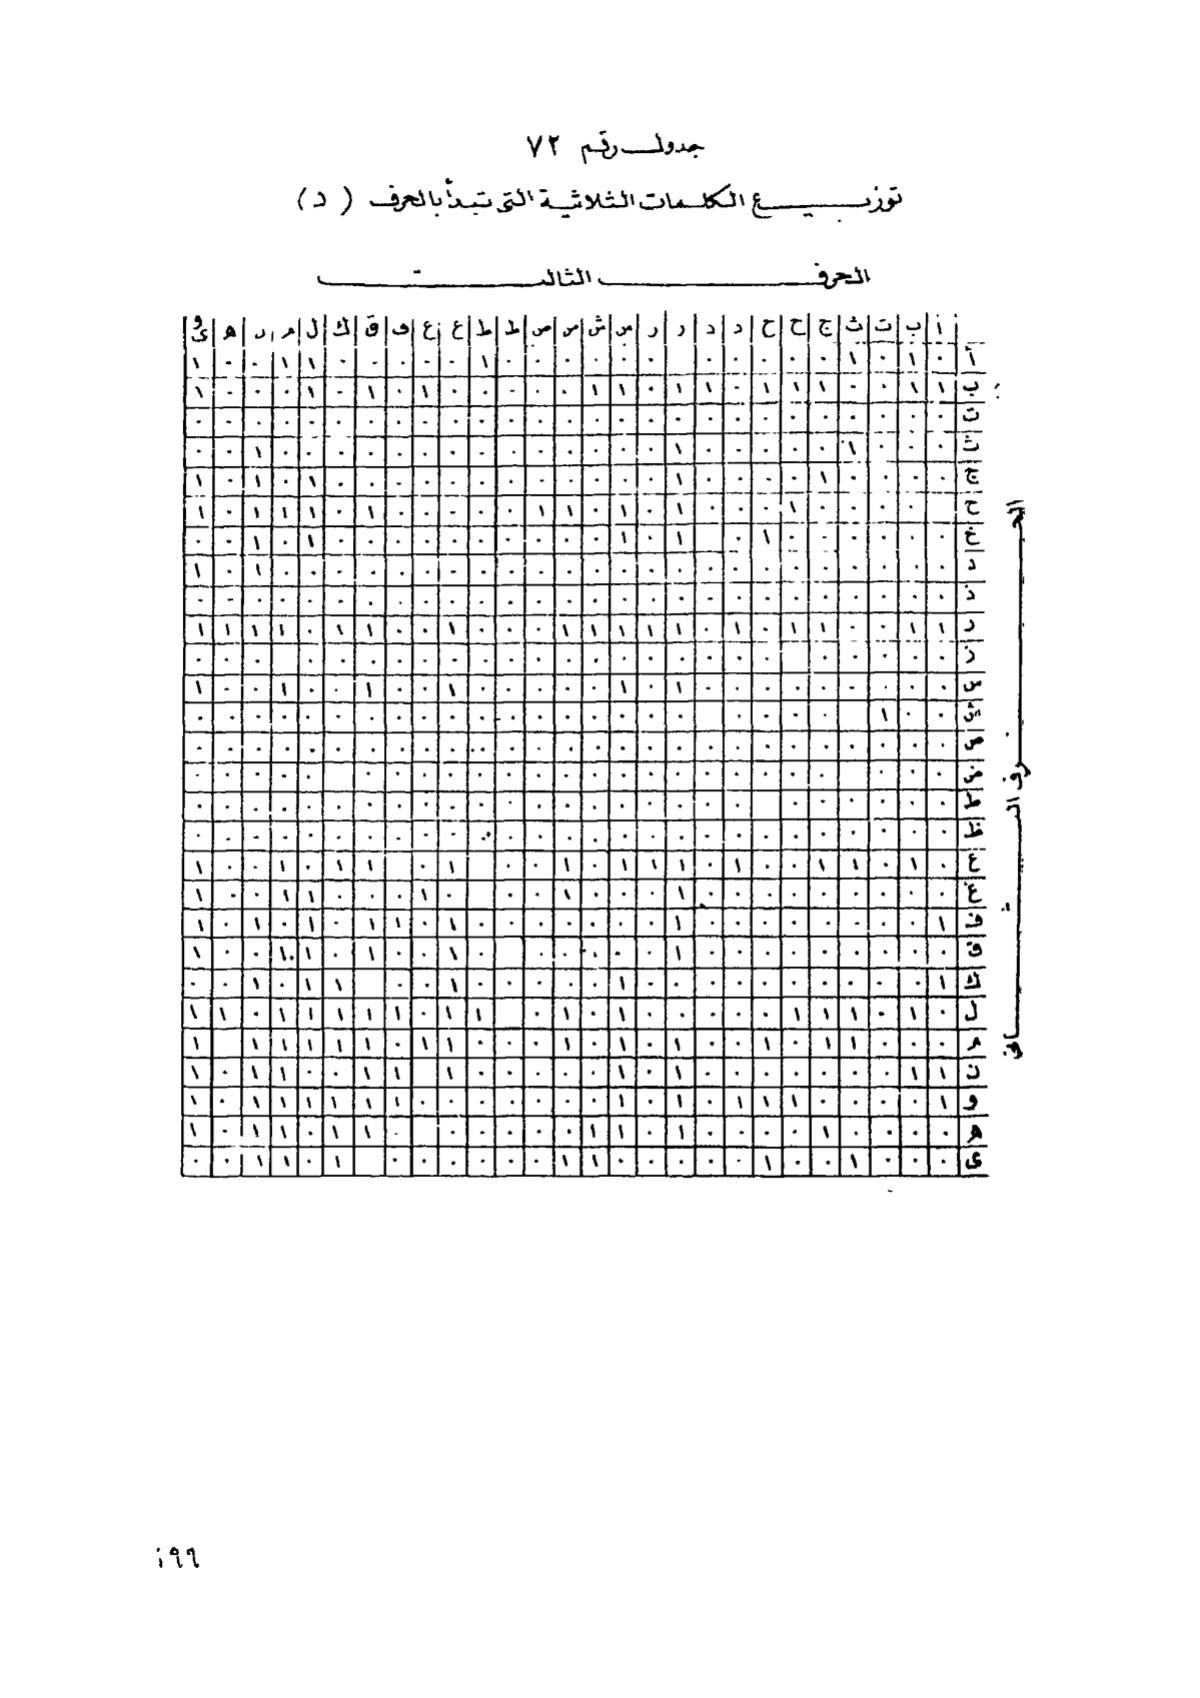 جدول رقم ٧٢
توزيع الكلمات الثلاثية التى تبدأ بالحرف (د)
الحرف الثالث
أ ب ت ث ج ح خ د ذ ر ز س ش ص ض ط ظ ع غ ف ق ك ل م ن ه وى
الحرف الثانى
أ ٠ ١ ٠ ١ ٠ ٠ ٠ ٠ ٠ ٠ ٠ ٠ ٠ ٠ ٠ ٠ ١ ٠ ٠ ٠ ٠ ٠ ١ ١ ٠ ٠ ١
ب ١ ١ ٠ ٠ ١ ١ ١ ٠ ١ ١ ٠ ١ ١ ٠ ٠ ٠ ٠ ٠ ١ ٠ ١ ٠ ١ ٠ ٠ ٠ ١
ت ٠ ٠ ٠ ٠ ٠ ٠ ٠ ٠ ٠ ٠ ٠ ٠ ٠ ٠ ٠ ٠ ٠ ٠ ٠ ٠ ٠ ٠ ٠ ٠ ٠ ٠ ٠
ث ٠ ٠ ٠ ١ ٠ ٠ ٠ ٠ ٠ ١ ٠ ٠ ٠ ٠ ٠ ٠ ٠ ٠ ٠ ٠ ٠ ٠ ٠ ٠ ١ ٠ ٠
ج ٠ ٠ ٠ ٠ ١ ٠ ٠ ٠ ٠ ١ ٠ ٠ ٠ ٠ ٠ ٠ ٠ ٠ ٠ ٠ ٠ ٠ ١ ٠ ١ ٠ ١
ح ٠ ٠ ٠ ٠ ٠ ١ ٠ ٠ ٠ ١ ٠ ١ ٠ ١ ١ ٠ ٠ ٠ ٠ ٠ ١ ٠ ١ ١ ١ ٠ ١
خ ٠ ٠ ٠ ٠ ٠ ٠ ١ ٠ ٠ ١ ٠ ١ ٠ ٠ ٠ ٠ ٠ ٠ ٠ ٠ ٠ ٠ ١ ٠ ١ ٠ ٠
د ٠ ٠ ٠ ٠ ٠ ٠ ٠ ٠ ٠ ٠ ٠ ٠ ٠ ٠ ٠ ٠ ٠ ٠ ٠ ٠ ٠ ٠ ٠ ٠ ١ ٠ ١
ذ ٠ ٠ ٠ ٠ ٠ ٠ ٠ ٠ ٠ ٠ ٠ ٠ ٠ ٠ ٠ ٠ ٠ ٠ ٠ ٠ ٠ ٠ ٠ ٠ ٠ ٠ ٠
ر ١ ١ ٠ ٠ ١ ١ ٠ ١ ٠ ١ ١ ١ ١ ١ ٠ ٠ ٠ ١ ٠ ٠ ١ ١ ٠ ١ ١ ١ ١
ز ٠ ٠ ٠ ٠ ٠ ٠ ٠ ٠ ٠ ٠ ٠ ٠ ٠ ٠ ٠ ٠ ٠ ٠ ٠ ٠ ٠ ٠ ٠ ٠ ٠ ٠ ٠
س ٠ ٠ ٠ ٠ ٠ ٠ ٠ ٠ ٠ ١ ٠ ١ ٠ ٠ ٠ ٠ ٠ ١ ٠ ٠ ١ ٠ ٠ ١ ٠ ٠ ١
ش ٠ ٠ ١ ٠ ٠ ٠ ٠ ٠ ٠ ٠ ٠ ٠ ٠ ٠ ٠ ٠ ٠ ٠ ٠ ٠ ٠ ٠ ٠ ٠ ٠ ٠ ٠
ص ٠ ٠ ٠ ٠ ٠ ٠ ٠ ٠ ٠ ٠ ٠ ٠ ٠ ٠ ٠ ٠ ٠ ٠ ٠ ٠ ٠ ٠ ٠ ٠ ٠ ٠ ٠
ض ٠ ٠ ٠ ٠ ٠ ٠ ٠ ٠ ٠ ٠ ٠ ٠ ٠ ٠ ٠ ٠ ٠ ٠ ٠ ٠ ٠ ٠ ٠ ٠ ٠ ٠ ٠
ط ٠ ٠ ٠ ٠ ٠ ٠ ٠ ٠ ٠ ٠ ٠ ٠ ٠ ٠ ٠ ٠ ٠ ٠ ٠ ٠ ٠ ٠ ٠ ٠ ٠ ٠ ٠
ظ ٠ ٠ ٠ ٠ ٠ ٠ ٠ ٠ ٠ ٠ ٠ ٠ ٠ ٠ ٠ ٠ ٠ ٠ ٠ ٠ ٠ ٠ ٠ ٠ ٠ ٠ ٠
ع ٠ ١ ٠ ١ ١ ٠ ٠ ١ ٠ ١ ١ ١ ٠ ١ ٠ ٠ ٠ ١ ٠ ٠ ١ ١ ٠ ١ ٠ ٠ ١
غ ٠ ٠ ٠ ٠ ٠ ٠ ٠ ٠ ٠ ١ ٠ ٠ ٠ ١ ٠ ٠ ٠ ٠ ١ ٠ ٠ ٠ ١ ١ ٠ ٠ ١
ف ١ ٠ ٠ ٠ ٠ ٠ ٠ ٠ ٠ ١ ٠ ٠ ٠ ٠ ٠ ٠ ٠ ١ ٠ ١ ١ ٠ ١ ٠ ١ ٠ ١
ق ٠ ٠ ٠ ٠ ٠ ٠ ٠ ٠ ٠ ١ ٠ ٠ ٠ ٠ ٠ ٠ ٠ ١ ٠ ٠ ١ ٠ ١ ١ ٠ ٠ ١
ك ١ ٠ ٠ ٠ ٠ ٠ ٠ ٠ ٠ ٠ ٠ ١ ٠ ٠ ٠ ٠ ٠ ١ ٠ ٠ ٠ ١ ١ ٠ ١ ٠ ٠
ل ٠ ١ ٠ ١ ١ ١ ٠ ٠ ٠ ٠ ٠ ١ ٠ ١ ٠ ٠ ١ ١ ٠ ١ ١ ١ ١ ١ ٠ ١ ١
م ٠ ٠ ٠ ١ ١ ٠ ١ ٠ ٠ ١ ٠ ١ ٠ ١ ٠ ٠ ٠ ١ ١ ٠ ١ ١ ١ ١ ١ ٠ ١
ن ١ ١ ٠ ٠ ٠ ٠ ٠ ٠ ٠ ١ ٠ ١ ٠ ٠ ٠ ٠ ٠ ١ ٠ ١ ١ ٠ ٠ ١ ١ ٠ ١
و ١ ٠ ٠ ٠ ٠ ١ ١ ١ ٠ ١ ٠ ١ ٠ ٠ ٠ ٠ ٠ ٠ ٠ ١ ١ ١ ١ ١ ١ ٠ ١
ه ٠ ٠ ٠ ٠ ١ ٠ ٠ ٠ ٠ ١ ٠ ١ ١ ٠ ٠ ٠ ٠ ٠ ٠ ٠ ١ ١ ٠ ١ ١ ٠ ١
ى ٠ ٠ ٠ ١ ٠ ٠ ١ ٠ ٠ ٠ ٠ ٠ ١ ١ ٠ ٠ ٠ ٠ ٠ ٠ ٠ ١ ٠ ١ ١ ٠ ٠
١٩٩